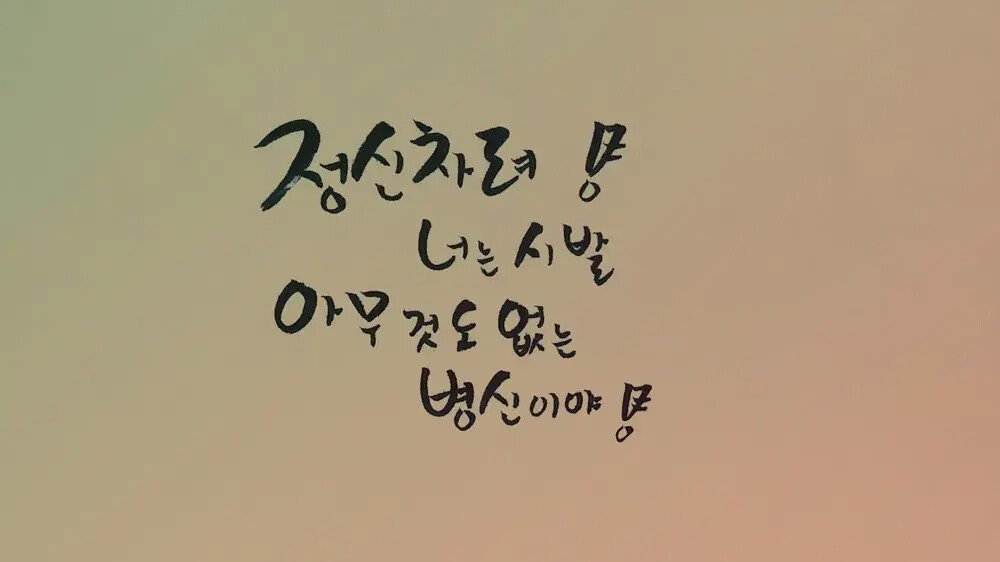 정신차려
너는 시발
아무것도 없는
병신이야